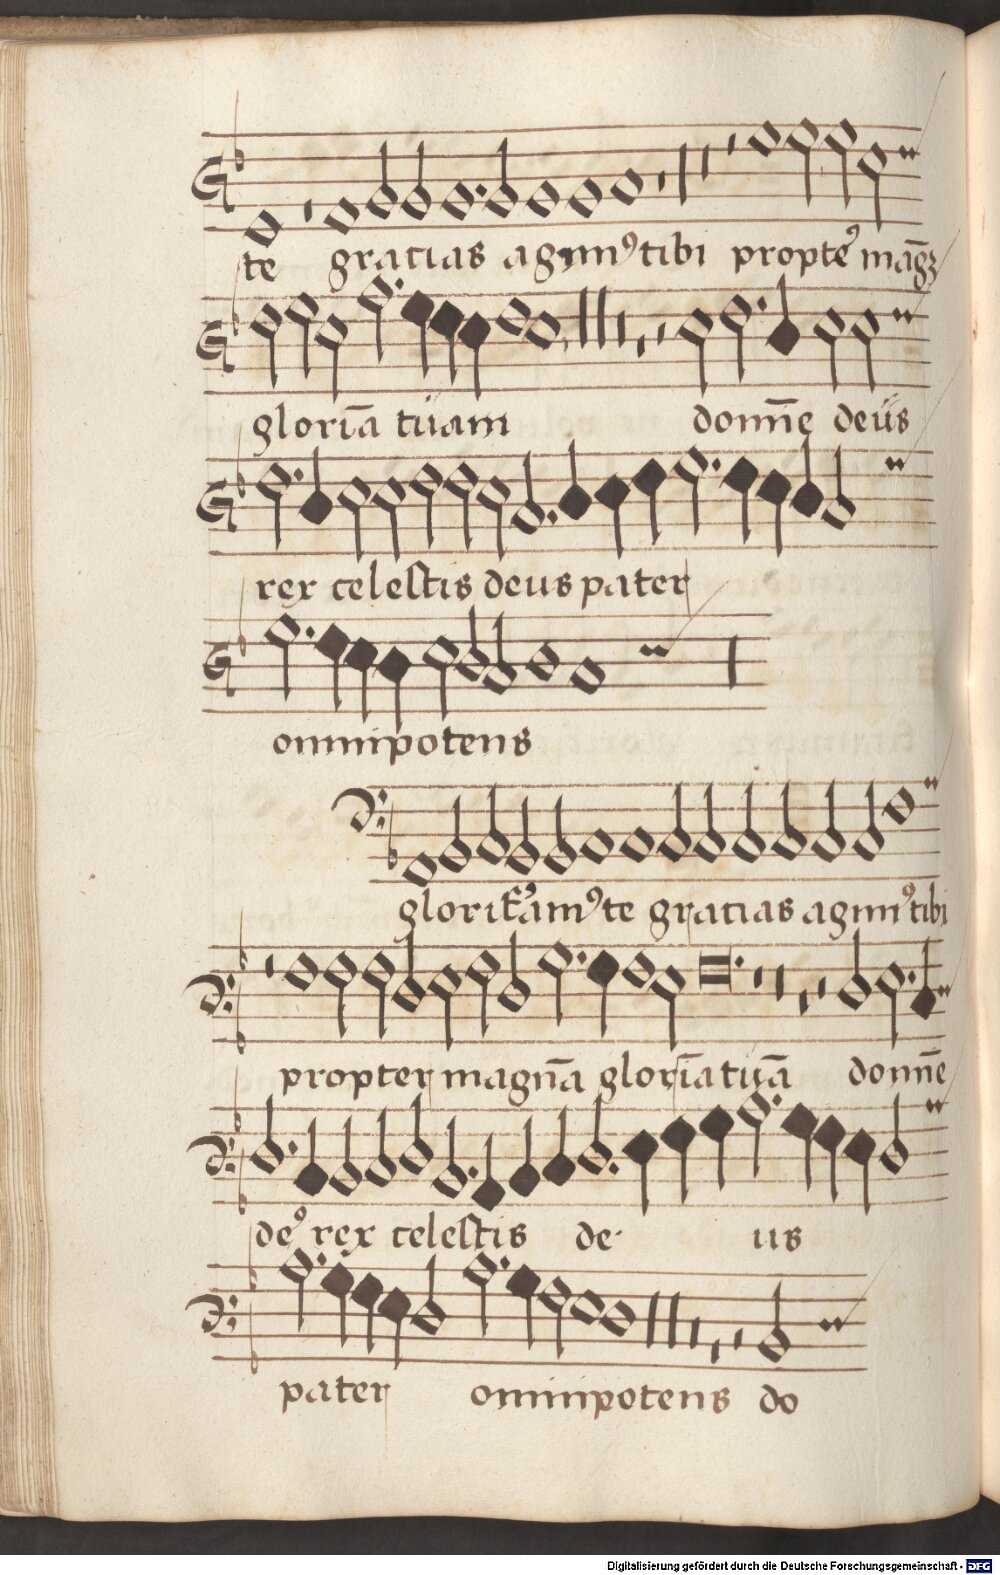 te gracias agim⁹ tibi propte᷒ mãgꝫ
gloriã tuam domĩe deus
rex celestis deus pater
omnipotens
glorificam⁹ te gracias agim⁹ tibi
propter magnã gloriã tuã domĩe
de⁹ rex celestis de us
pater omnipotens do
Digitalisierung gefördert durch die Deutsche Forschungsgemeinschaft - DFG